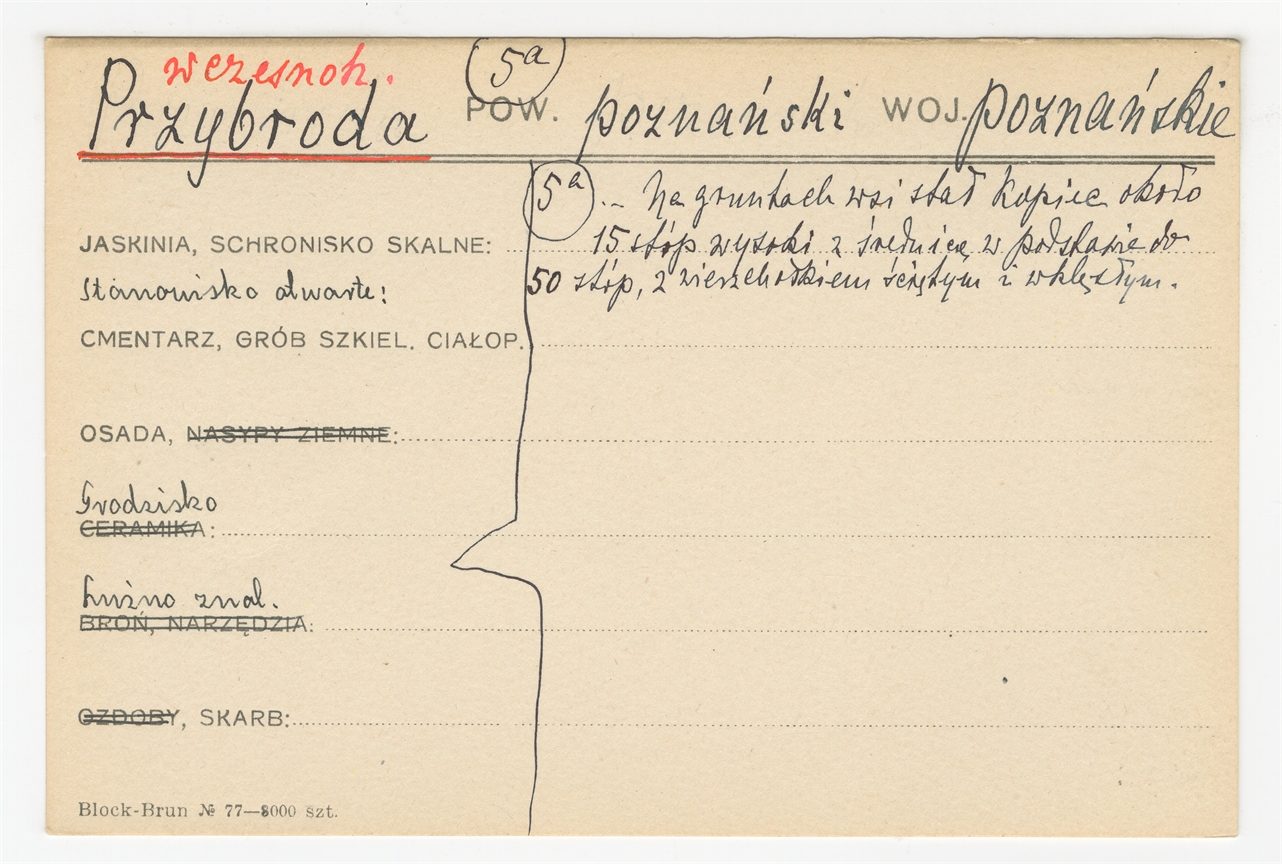 wczesnoh.
5a
Przybroda POW. poznański WOJ. poznańskie
5a .. Na gruntach wsi stał kopiec około
JASKINIA, SCHRONISKO SKALNE: 15 stóp wysoki z średnicą w podstawie do
Stanowisko otwarte: 50 stóp, z wierzchołkiem ściętym i wklęsłym.
CMENTARZ, GRÓB SZKIEL. CIAŁOP.
OSADA, NASYPY ZIEMNE:
Grodzisko
CERAMIKA:
Luźno znal.
BROŃ, NARZĘDZIA:
OZDOBY, SKARB:
Block-Brun № 77—8000 szt.